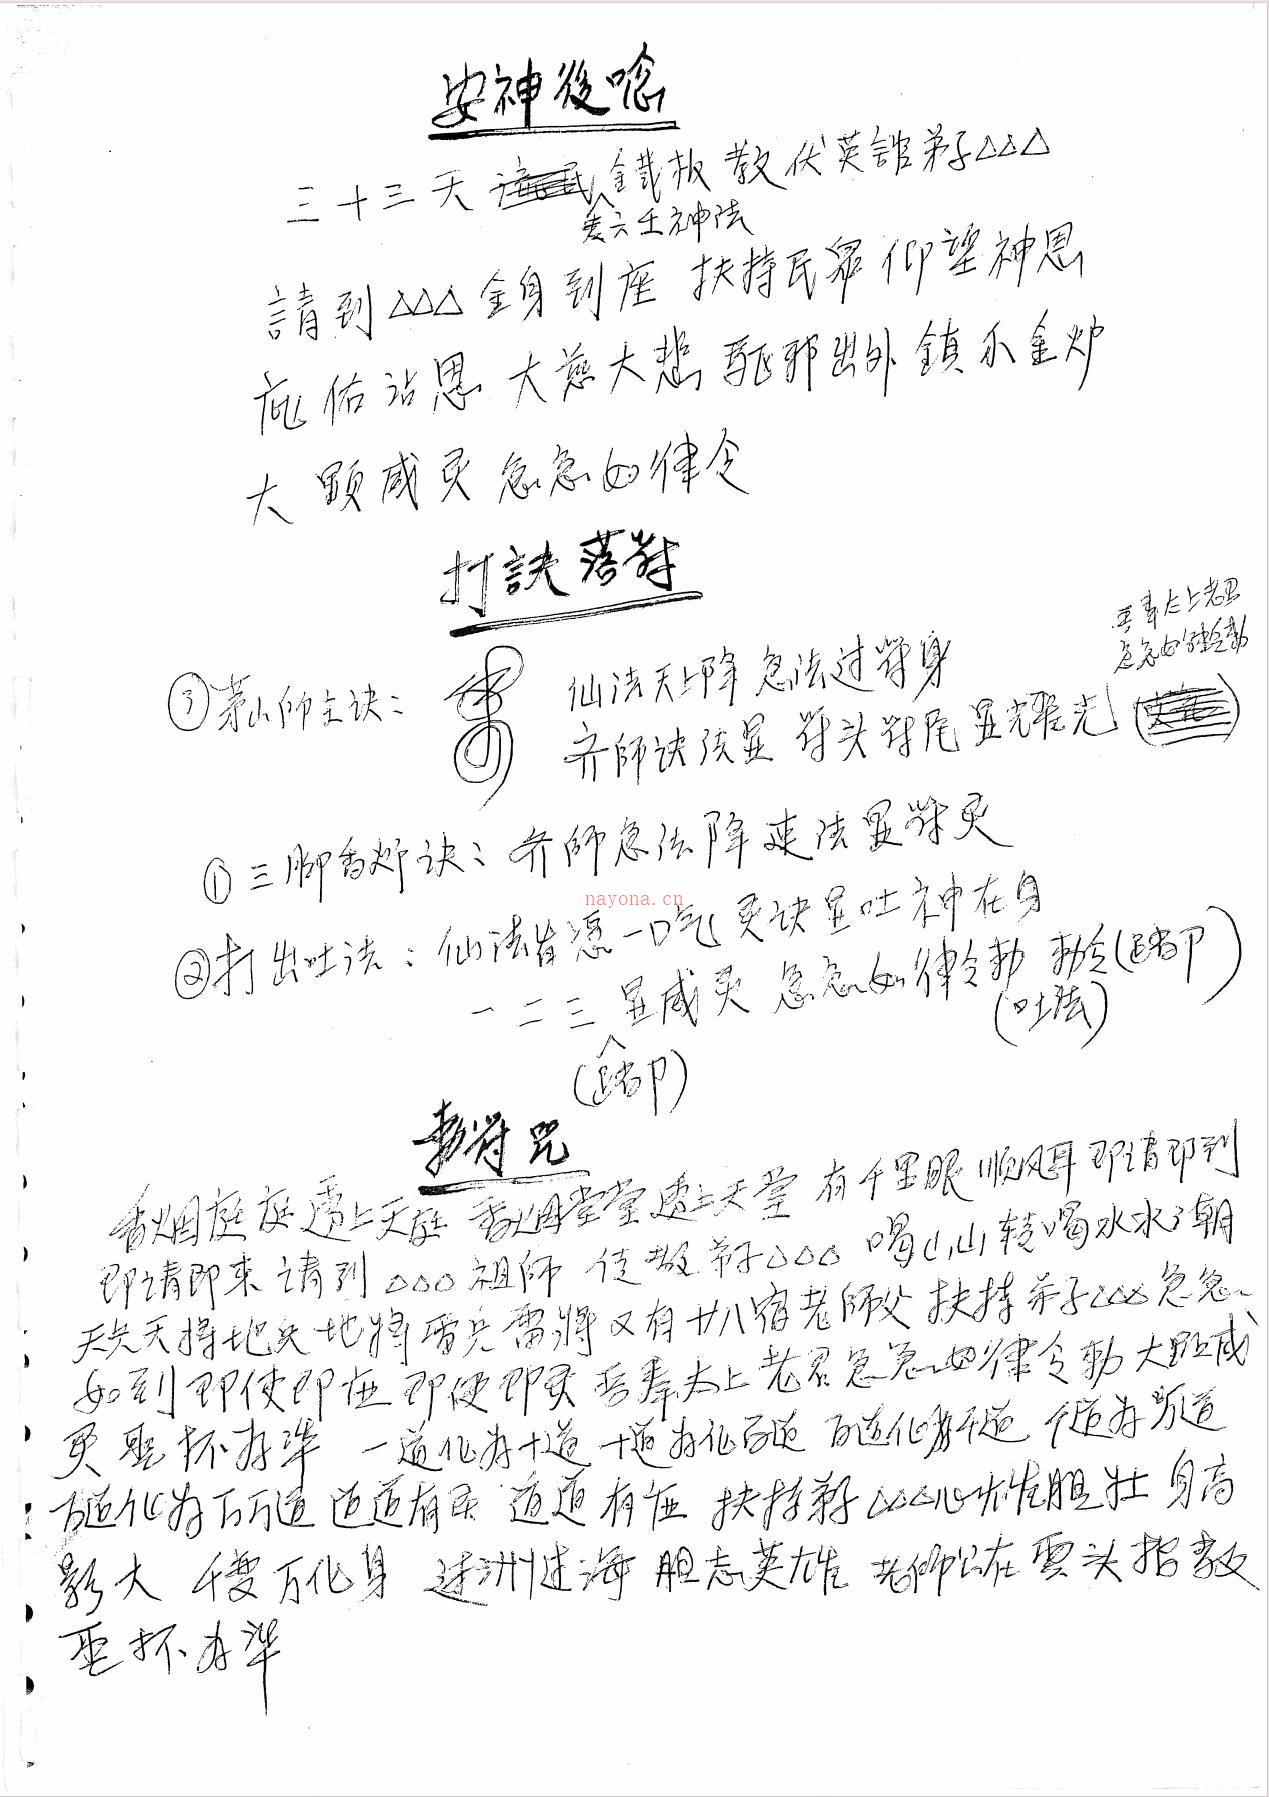 安神後唸
三十三天 鐵板教伏英舘弟子△△△
六壬神法
請到△△△金身到座 扶持民眾 仰望神恩
庇佑沾恩 大慈大悲 驱邪出外 鎮 金炉
大顕威灵 急急如律令
打訣落符
吾奉太上老君
急急如律令勅
③茅山師主诀: 仙法天上降 急法过符身
齐師诀法显 符头符尾显光 光
①三脚香炉诀: 齐師急法降 速法显符灵
nayona.cn
②打出吐法: 仙法皆憑一口气 灵诀显吐神在身
一二三 显威灵 急急如律令勅 勅令(踏卩)
(吐法)
(踏卩)
勅符咒
香烟庭庭透上天庭 香烟堂堂透上天堂 有千里眼 順风耳 即请即到
即请即來 请到△△△祖師 传教弟子△△△ 喝山山转喝水水了朝
天兵天将地兵地将雷兵雷将又有廿八宿老师父 扶持弟子△△△急急
如到 即使即应 即使即灵 吾奉太上老君急急如律令勅 大顕威
灵 聖杯为準 一道化为十道 十道为化百道 百道化为千道 千道为万道
百道化为万万道 道道有灵 道道有应 扶持弟子△△△心雄胆壮 身高
影大 千变万化身 过洲过海 胆志英雄 老师公在雲头指教
聖杯为準